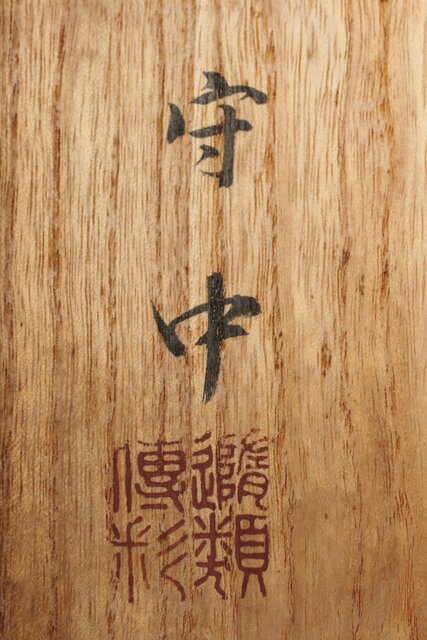 守中
隨類
傳彩